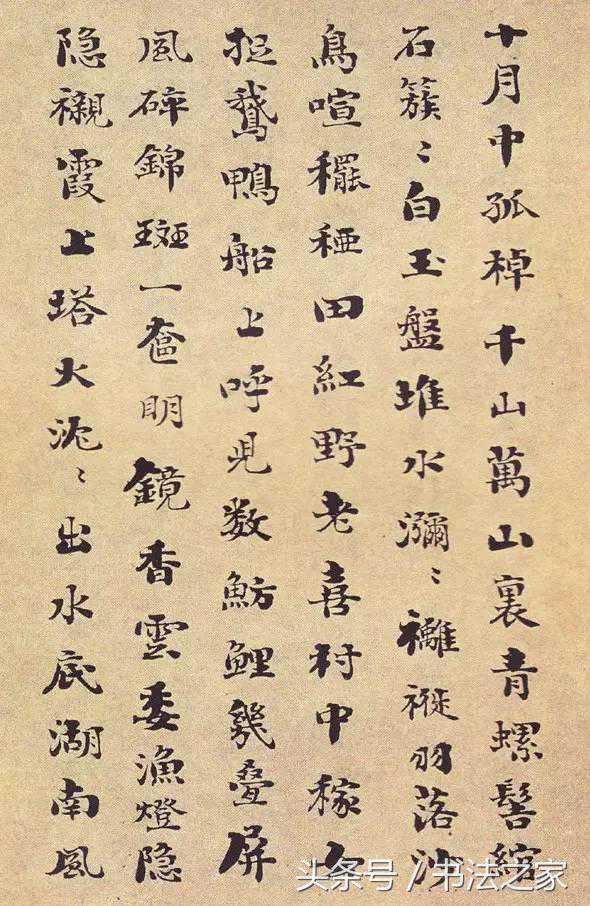 十月中孤棹千山萬山裏青螺髻綰
石簇〻白玉盤堆水瀰〻褵褷羽落沙
鳥喧䆉稏田紅野老喜村中稼
捉鵝鴨船上呼兒数魴鯉幾疊屏
風碎錦斑一奩明鏡香雲委漁燈隐
隐襯霞上塔火沉〻出水底湖南風
头条号 / 书法之家